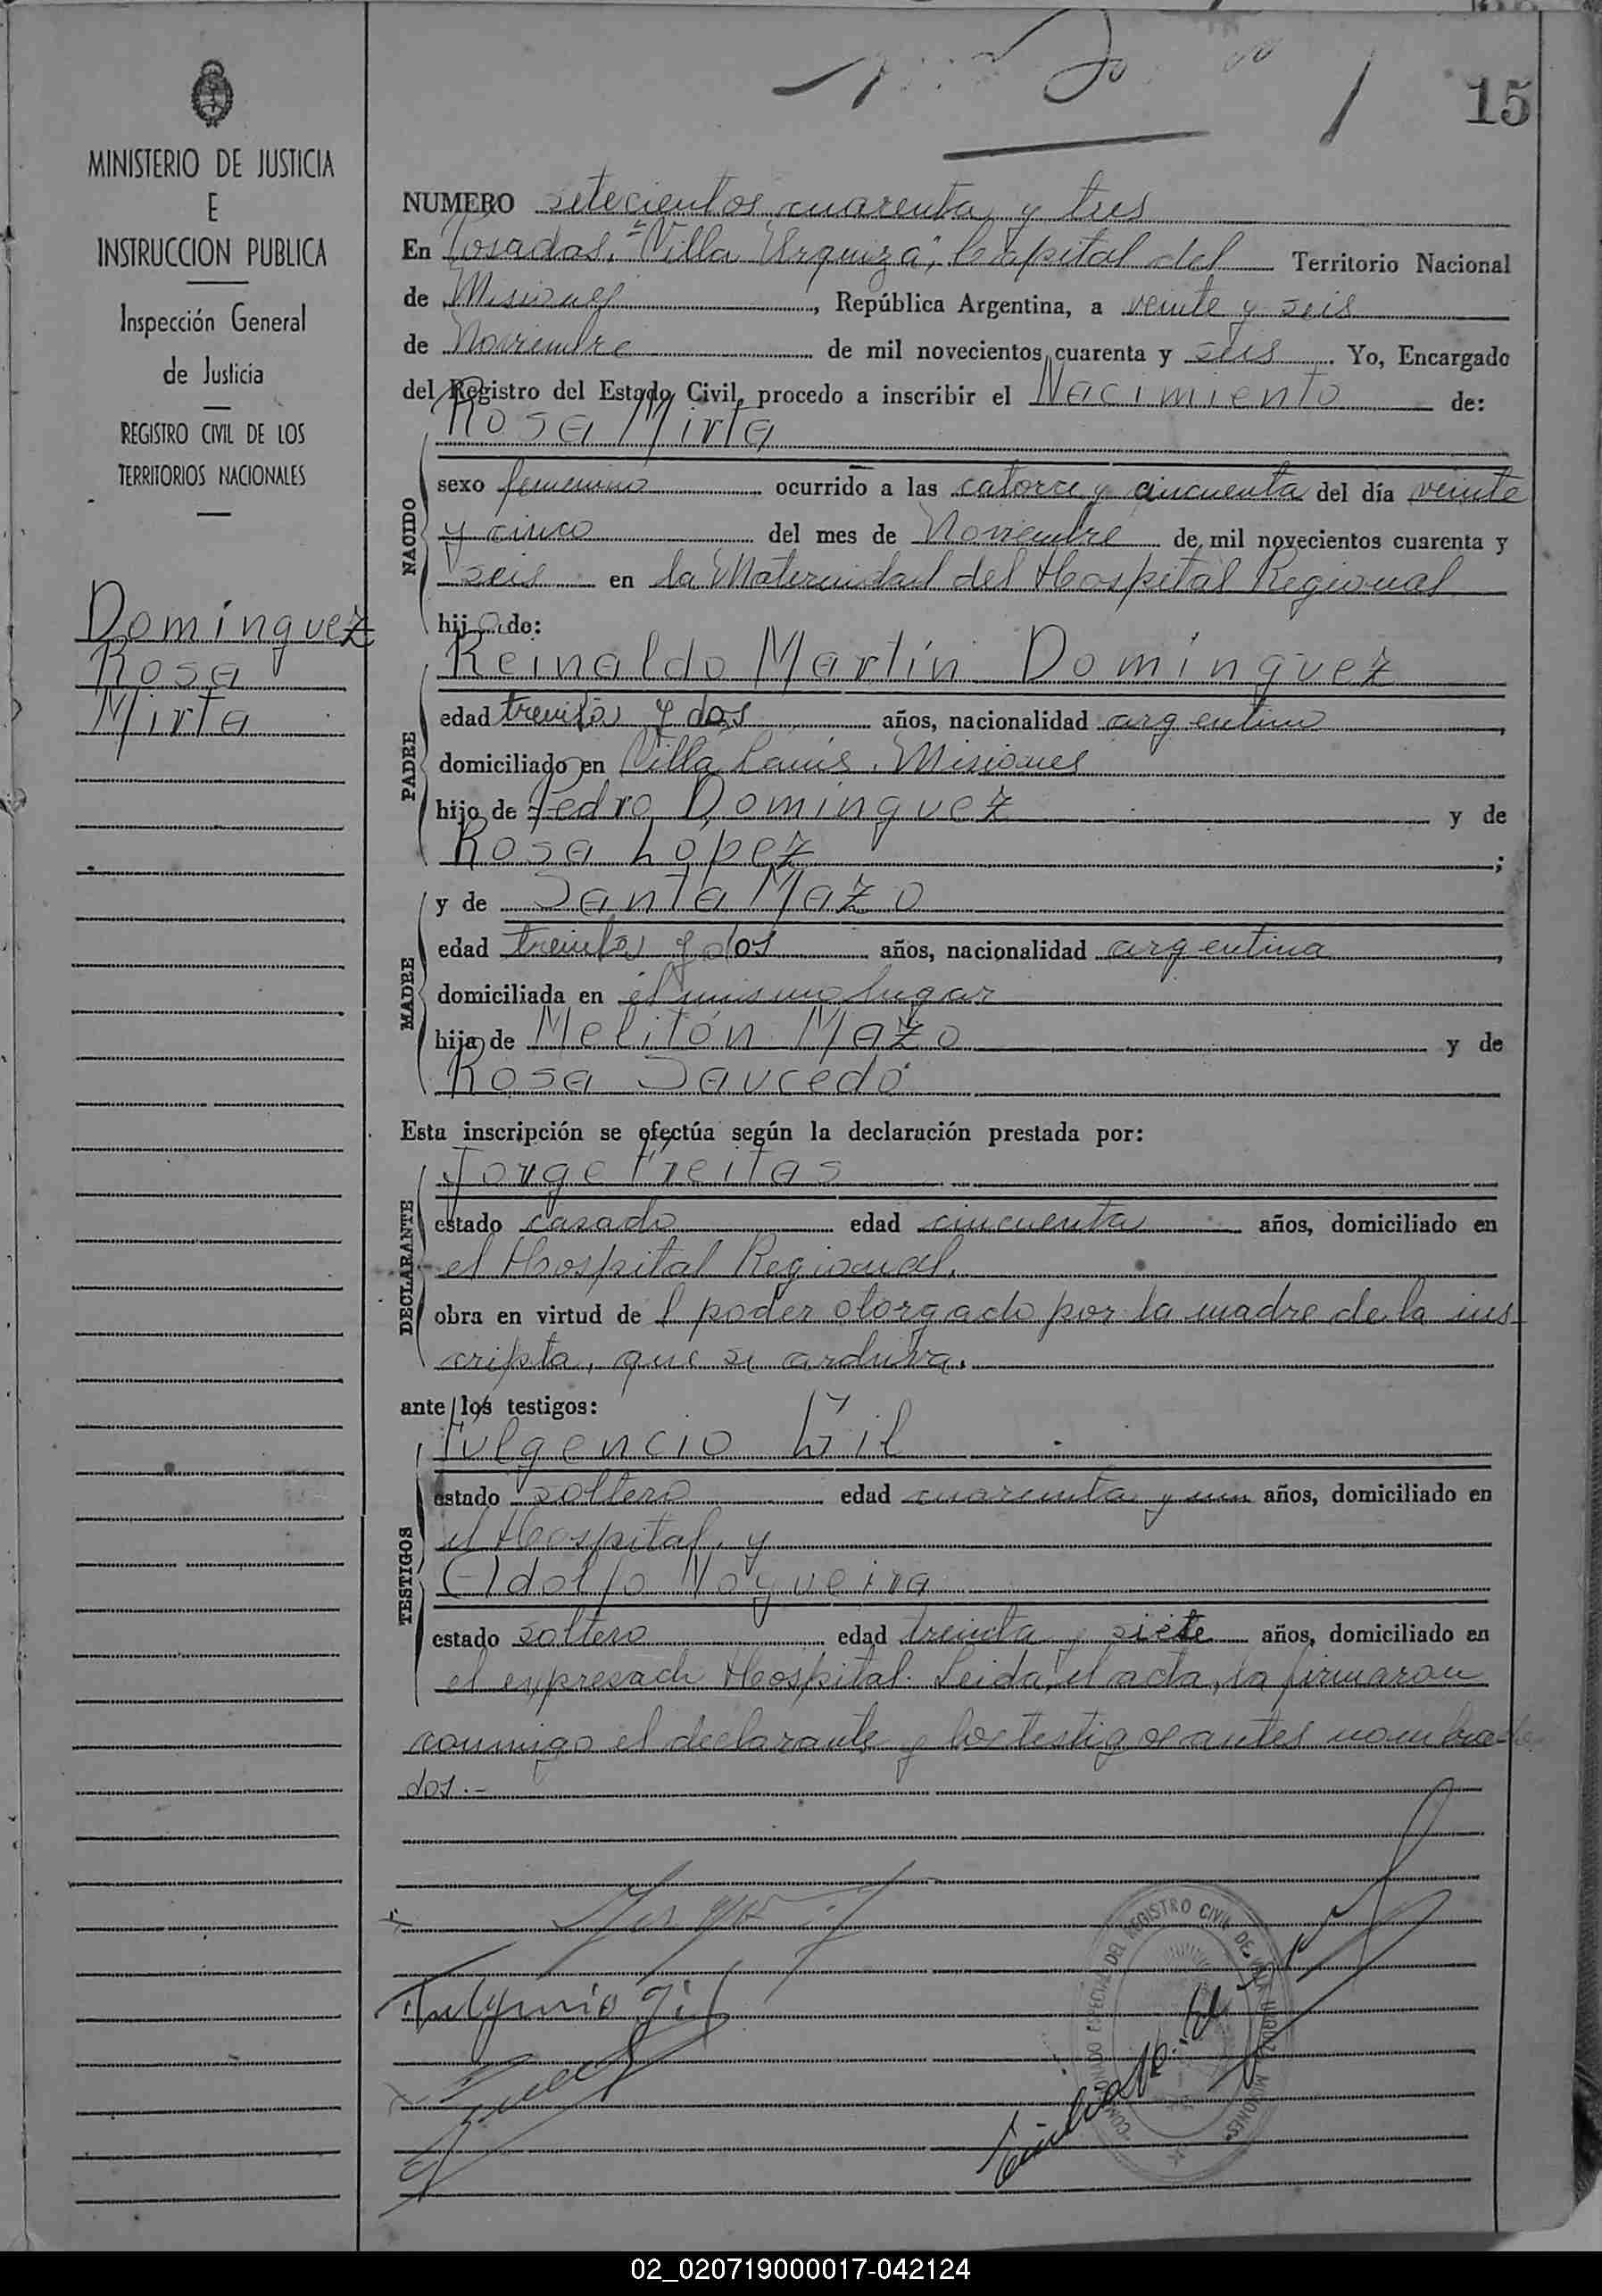 15
MINISTERIO DE JUSTICIA
E
INSTRUCCION PUBLICA
Inspección General
de Justicia
REGISTRO CIVIL DE LOS
TERRITORIOS NACIONALES
Dominguez
Rosa
Mirta
NUMERO setecientos cuarenta y tres
En Posadas, "Villa Urquiza", Capital del Territorio Nacional
de Misiones, República Argentina, a veinte y seis
de Noviembre de mil novecientos cuarenta y seis. Yo, Encargado
del Registro del Estado Civil, procedo a inscribir el Nacimiento de:
Rosa Mirta
NACIDO
sexo femenino ocurrido a las catorce y cincuenta del día veinte
y cinco del mes de Noviembre de mil novecientos cuarenta y
seis en la Maternidad del Hospital Regional
hija de:
PADRE
Reinaldo Martín Dominguez
edad treinta y dos años, nacionalidad argentino,
domiciliado en Villa Lanús, Misiones
hijo de Pedro Dominguez y de
Rosa Lopez;
MADRE
y de Santa Mazo
edad treinta y dos años, nacionalidad argentina,
domiciliada en el mismo lugar
hija de Melitón Mazo y de
Rosa Saucedo
Esta inscripción se efectúa según la declaración prestada por:
DECLARANTE
Jorge Freitas
estado casado edad cincuenta años, domiciliado en
el Hospital Regional.
obra en virtud de l poder otorgado por la madre de la ins-
cripta, que se archiva.
ante los testigos:
TESTIGOS
Fulgencio Gil
estado soltero edad cuarenta y un años, domiciliado en
el Hospital, y
Adolfo Nogueira
estado soltero edad treinta y siete años, domiciliado en
el expresado Hospital. Leida el acta, la firmaron
conmigo el declarante y los testigos antes nombra-
dos.-
Fulgencio Gil
REGISTRO CIVIL DE
MISIONES
02_020719000017-042124